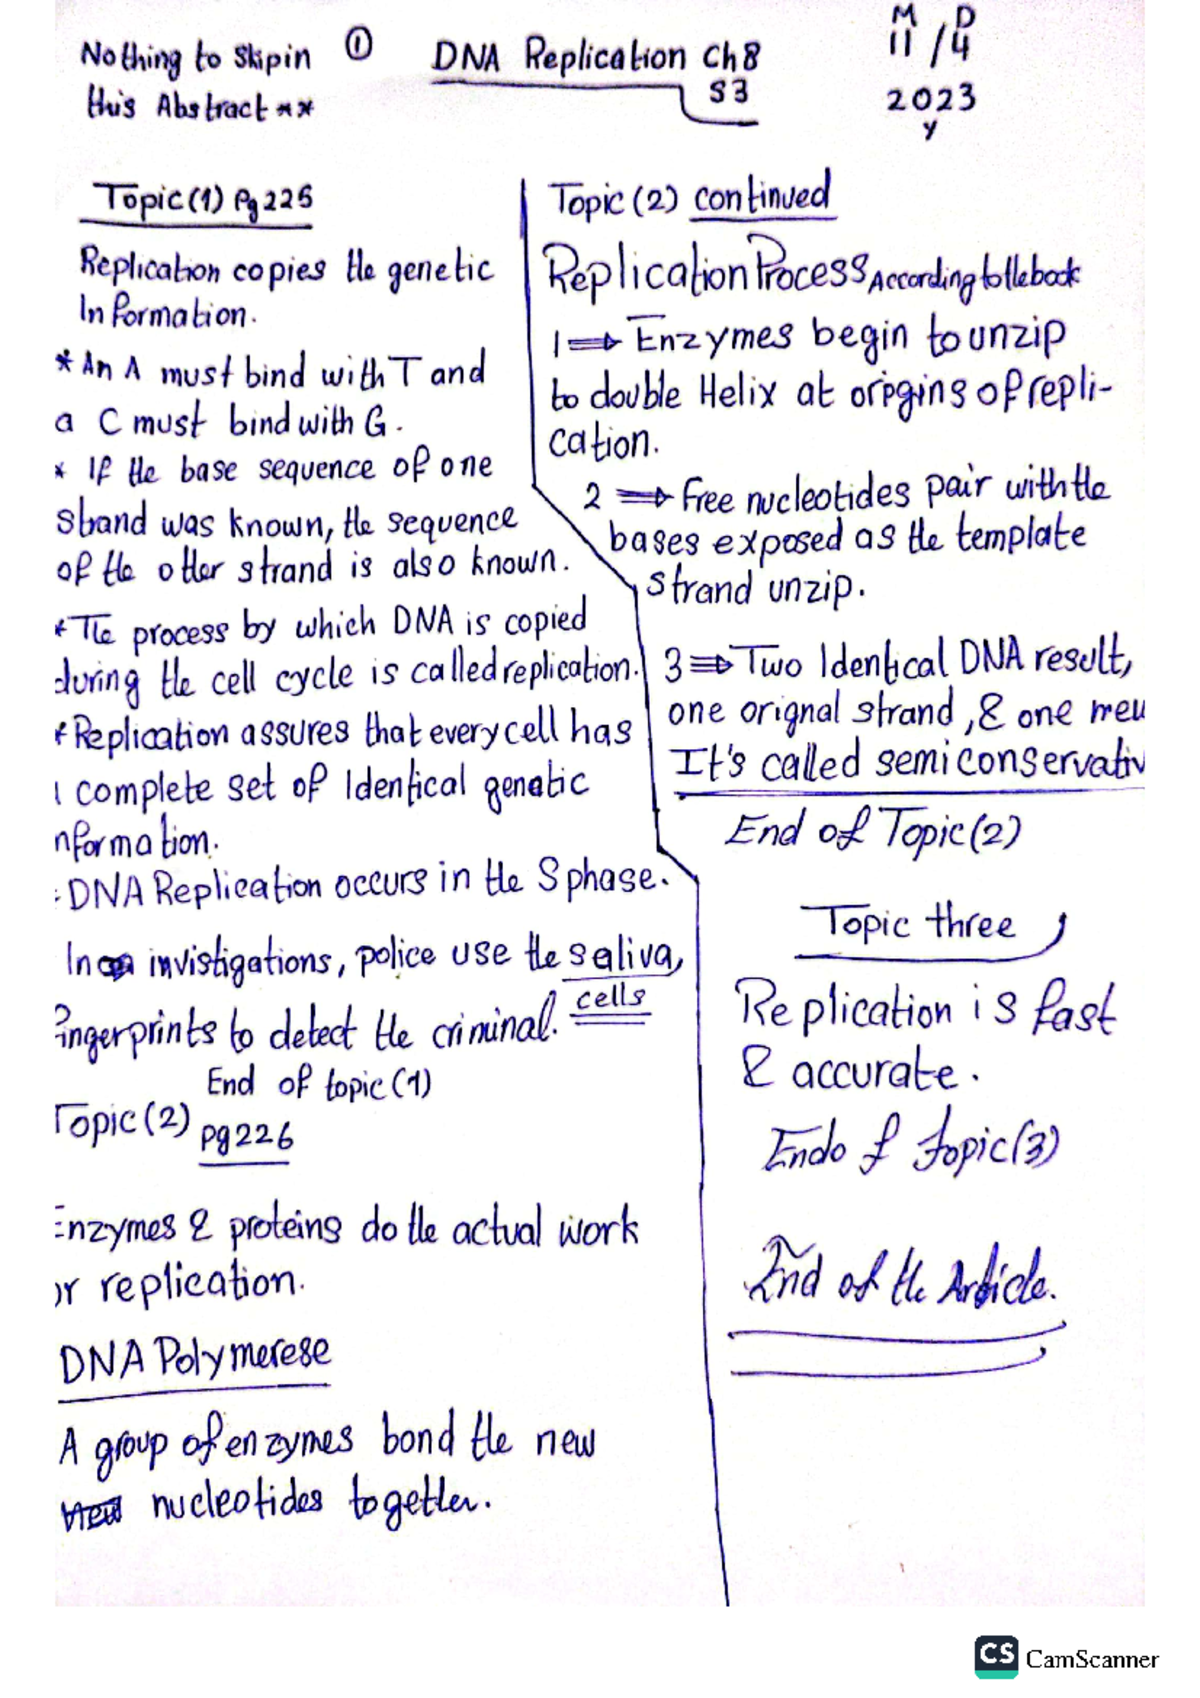 Nothing to Skip in ① DNA Replication Ch8
this Abstract **
S3
M D
11/4
2023
Y
Topic (1) Pg 225
Replication copies the genetic
Information.
* An A must bind with T and
a C must bind with G.
* If the base sequence of one
strand was known, the sequence
of the other strand is also known.
* The process by which DNA is copied
during the cell cycle is called replication.
* Replication assures that every cell has
complete set of Identical genetic
nformation.
DNA Replication occurs in the S phase.
In invistigations, police use the saliva,
cells
fingerprints to detect the criminal.
End of topic (1)
Topic (2) Pg 226
Enzymes & proteins do the actual work
or replication.
DNA Polymerese
A group of enzymes bond the new
nucleotides together.
Topic (2) continued
Replication Process According to the book
1 ⇒ Enzymes begin to unzip
to double Helix at origins of repli-
cation.
2 ⇒ Free nucleotides pair with the
bases exposed as the template
strand unzip.
3 ⇒ Two Identical DNA result,
one orignal strand, & one new
It's called semi conservativ
End of Topic (2)
Topic three
Replication is fast
& accurate.
End of topic (3)
End of the Article.
CS CamScanner